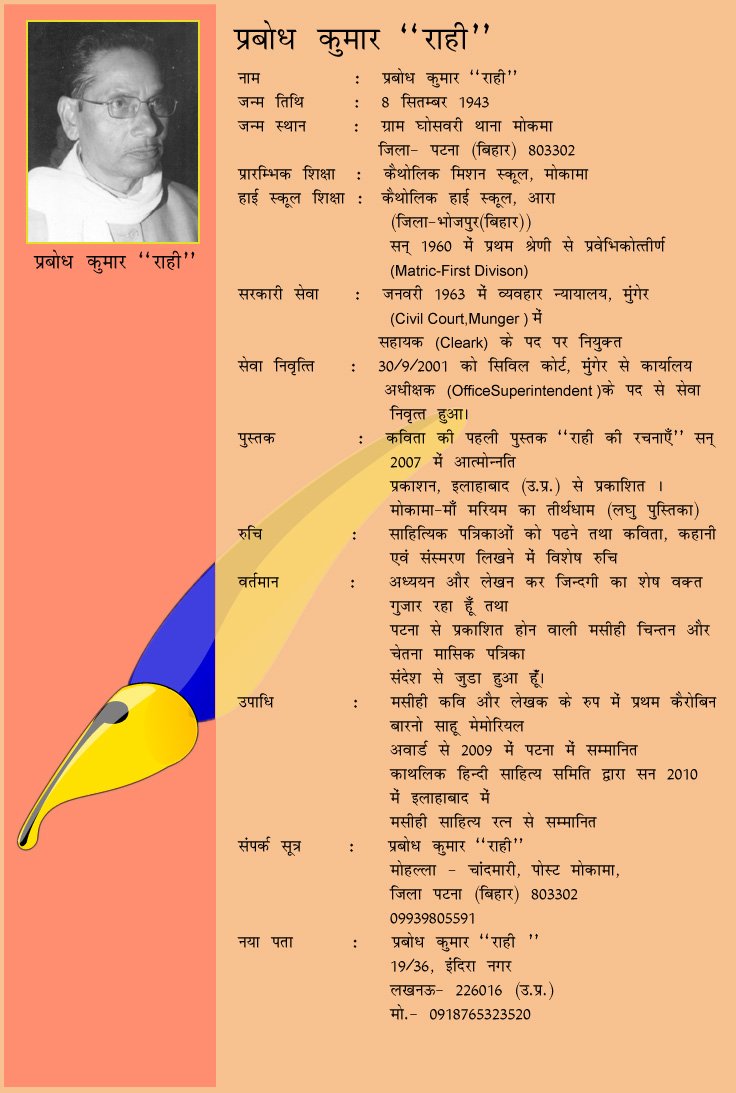 प्रबोध कुमार ‘‘राही’’
प्रबोध कुमार ‘‘राही’’
नाम : प्रबोध कुमार ‘‘राही’’
जन्म तिथि : 8 सितम्बर 1943
जन्म स्थान : ग्राम घोसवरी थाना मोकमा
जिला- पटना (बिहार) 803302
प्रारम्भिक शिक्षा : कैथोलिक मिशन स्कूल, मोकामा
हाई स्कूल शिक्षा : कैथोलिक हाई स्कूल, आरा
(जिला-भोजपुर(बिहार))
सन् 1960 में प्रथम श्रेणी से प्रवेभिकोत्तीर्ण
(Matric-First Divison)
सरकारी सेवा : जनवरी 1963 में व्यवहार न्यायालय, मुंगेर
(Civil Court,Munger ) में
सहायक (Cleark) के पद पर नियुक्त
सेवा निवृत्ति : 30/9/2001 को सिविल कोर्ट, मुंगेर से कार्यालय
अधीक्षक (OfficeSuperintendent )के पद से सेवा
निवृत्त हुआ।
पुस्तक : कविता की पहली पुस्तक ‘‘राही की रचनाएँ’’ सन्
2007 में आत्मोन्नति
प्रकाशन, इलाहाबाद (उ.प्र.) से प्रकाशित ।
मोकामा-माँ मरियम का तीर्थधाम (लघु पुस्तिका)
रुचि : साहित्यिक पत्रिकाओं को पढने तथा कविता, कहानी
एवं संस्मरण लिखने में विशेष रुचि
वर्तमान : अध्ययन और लेखन कर जिन्दगी का शेष वक्त
गुजार रहा हूँ तथा
पटना से प्रकाशित होन वाली मसीही चिन्तन और
चेतना मासिक पत्रिका
संदेश से जुडा हुआ हूँ।
उपाधि : मसीही कवि और लेखक के रुप में प्रथम कैरोबिन
बारनो साहू मेमोरियल
अवार्ड से 2009 में पटना में सम्मानित
काथलिक हिन्दी साहित्य समिति द्वारा सन 2010
में इलाहाबाद में
मसीही साहित्य रत्न से सम्मानित
संपर्क सूत्र : प्रबोध कुमार ‘‘राही’’
मोहल्ला - चांदमारी, पोस्ट मोकामा,
जिला पटना (बिहार) 803302
09939805591
नया पता : प्रबोध कुमार ‘‘राही ’’
19/36, इंदिरा नगर
लखनऊ- 226016 (उ.प्र.)
मो.- 0918765323520